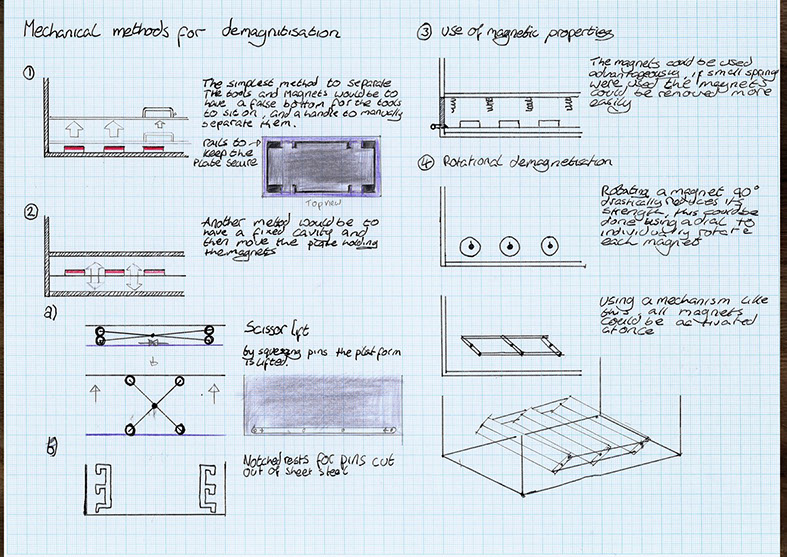 Mechanical methods for demagnitisation
①
The simplest method to separate
The tools and Magnets would be to
have a false bottom for the tools
to sit on, and a handle to manually
separate them.
Rails to
keep the
plate secure
Top view
②
Another metod would be to
have a fixed cavity and
then move the plate holding
the magnets
a)
Scissor lift
by squeezing pins the platform
is lifted.
b)
Notched rests for pins cut
out of sheet steel
③ Use of magnetic properties
The magnets could be used
advantageously, if small spring
were used the magnets
could be removed more
easily
④ Rotational demagnetisation
Rotating a magnet 90°
drastically reduces its
strength, this could be
done using a dial to
individually rotate
each magnet
Using a mechanism like
this all magnets
could be activated
at once